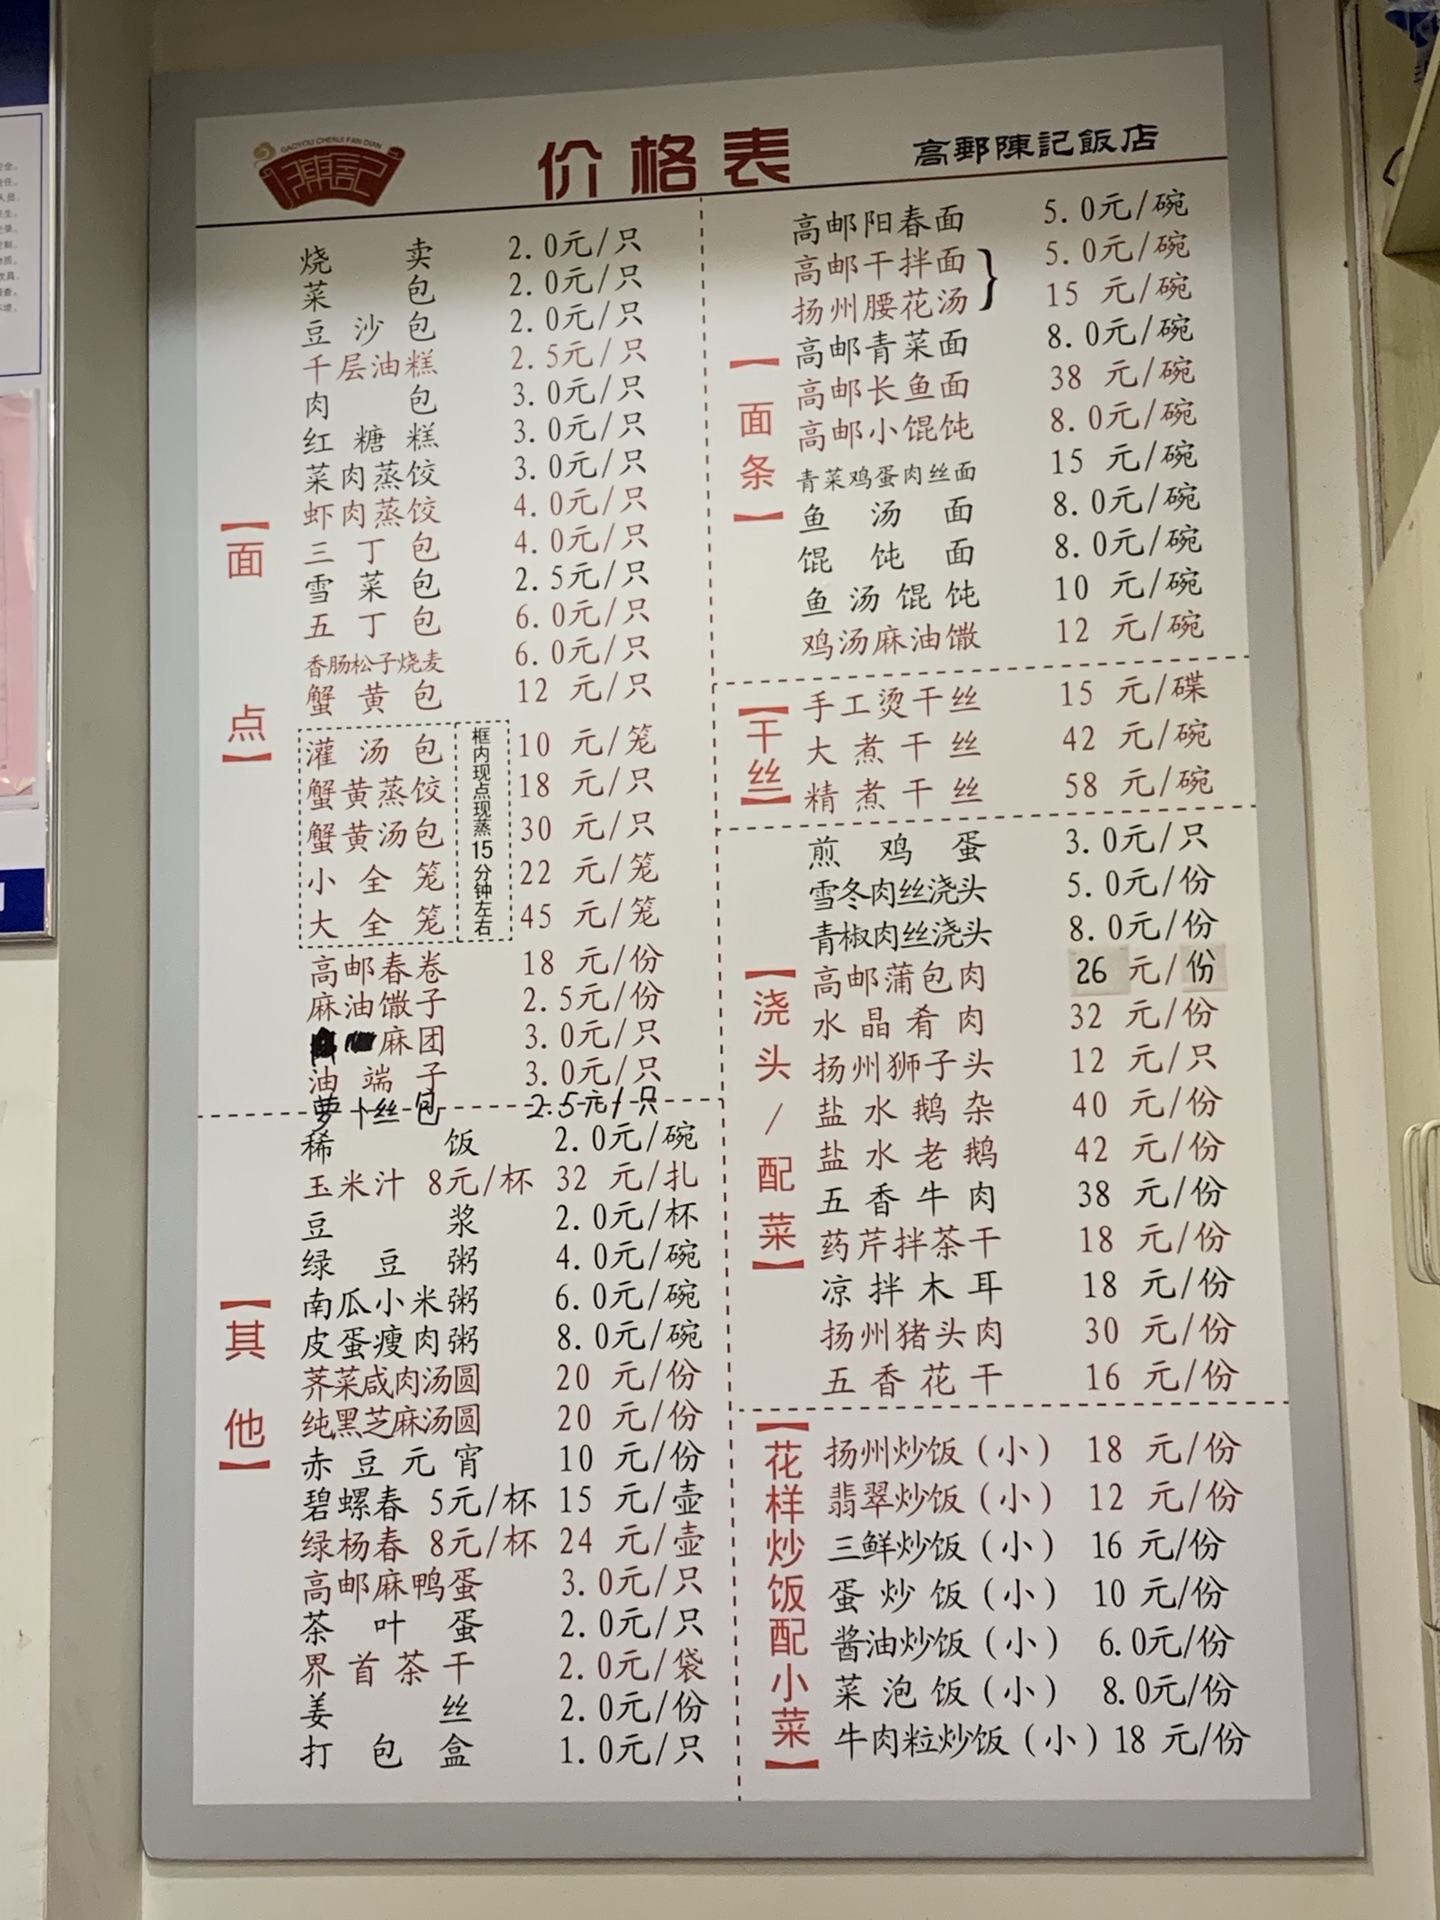 GAOYOU CHENJI FAN DIAN
陳記
价格表
高郵陳記飯店
【面点】
烧卖 2.0元/只
菜包 2.0元/只
豆沙包 2.0元/只
千层油糕 2.5元/只
肉包 3.0元/只
红糖糕 3.0元/只
菜肉蒸饺 3.0元/只
虾肉蒸饺 4.0元/只
三丁包 4.0元/只
雪菜包 2.5元/只
五丁包 6.0元/只
香肠松子烧麦 6.0元/只
蟹黄包 12 元/只
灌汤包 10 元/笼
蟹黄蒸饺 18 元/只
蟹黄汤包 30 元/只
小全笼 22 元/笼
大全笼 45 元/笼
框内现点现蒸15分钟左右
高邮春卷 18 元/份
麻油馓子 2.5元/份
麻团 3.0元/只
油端子 3.0元/只
萝卜丝包 2.5元/只
【其他】
稀饭 2.0元/碗
玉米汁 8元/杯 32 元/扎
豆浆 2.0元/杯
绿豆粥 4.0元/碗
南瓜小米粥 6.0元/碗
皮蛋瘦肉粥 8.0元/碗
荠菜咸肉汤圆 20 元/份
纯黑芝麻汤圆 20 元/份
赤豆元宵 10 元/份
碧螺春 5元/杯 15 元/壶
绿杨春 8元/杯 24 元/壶
高邮麻鸭蛋 3.0元/只
茶叶蛋 2.0元/只
界首茶干 2.0元/袋
姜丝 2.0元/份
打包盒 1.0元/只
【面条】
高邮阳春面 5.0元/碗
高邮干拌面 5.0元/碗
扬州腰花汤 15 元/碗
高邮青菜面 8.0元/碗
高邮长鱼面 38 元/碗
高邮小馄饨 8.0元/碗
青菜鸡蛋肉丝面 15 元/碗
鱼汤面 8.0元/碗
馄饨面 8.0元/碗
鱼汤馄饨 10 元/碗
鸡汤麻油馓 12 元/碗
【干丝】
手工烫干丝 15 元/碟
大煮干丝 42 元/碗
精煮干丝 58 元/碗
【浇头/配菜】
煎鸡蛋 3.0元/只
雪冬肉丝浇头 5.0元/份
青椒肉丝浇头 8.0元/份
高邮蒲包肉 26 元/份
水晶肴肉 32 元/份
扬州狮子头 12 元/只
盐水鹅杂 40 元/份
盐水老鹅 42 元/份
五香牛肉 38 元/份
药芹拌茶干 18 元/份
凉拌木耳 18 元/份
扬州猪头肉 30 元/份
五香花干 16 元/份
【花样炒饭配小菜】
扬州炒饭(小) 18 元/份
翡翠炒饭(小) 12 元/份
三鲜炒饭(小) 16 元/份
蛋炒饭(小) 10 元/份
酱油炒饭(小) 6.0元/份
菜泡饭(小) 8.0元/份
牛肉粒炒饭(小) 18 元/份